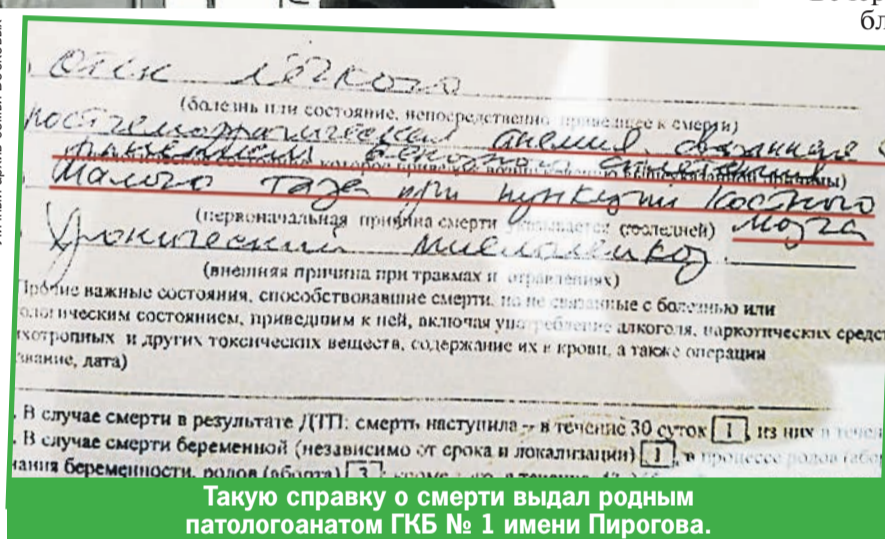 бл
отёк лёгкого
(болезнь или состояние, непосредственно приведшее к смерти)
постгеморрагическая анемия, связанная с
ранением венозного сплетения
малого таза при пункции костного
(первоначальная причина смерти указывается последней) мозга
Хронический миелолейкоз.
(внешняя причина при травмах и отравлениях)
Прочие важные состояния, способствовавшие смерти, но не связанные с болезнью или
ологическим состоянием, приведшим к ней, включая употребление алкоголя, наркотических средст
ихотропных и других токсических веществ, содержание их в крови, а также операция
звание, дата)
. В случае смерти в результате ДТП: смерть наступила – в течение 30 суток 1, из них в течен
. В случае смерти беременной (независимо от срока и локализации) 1, в процессе родов (абор
нания беременности, родов (аборта) 3
Такую справку о смерти выдал родным
патологоанатом ГКБ № 1 имени Пирогова.